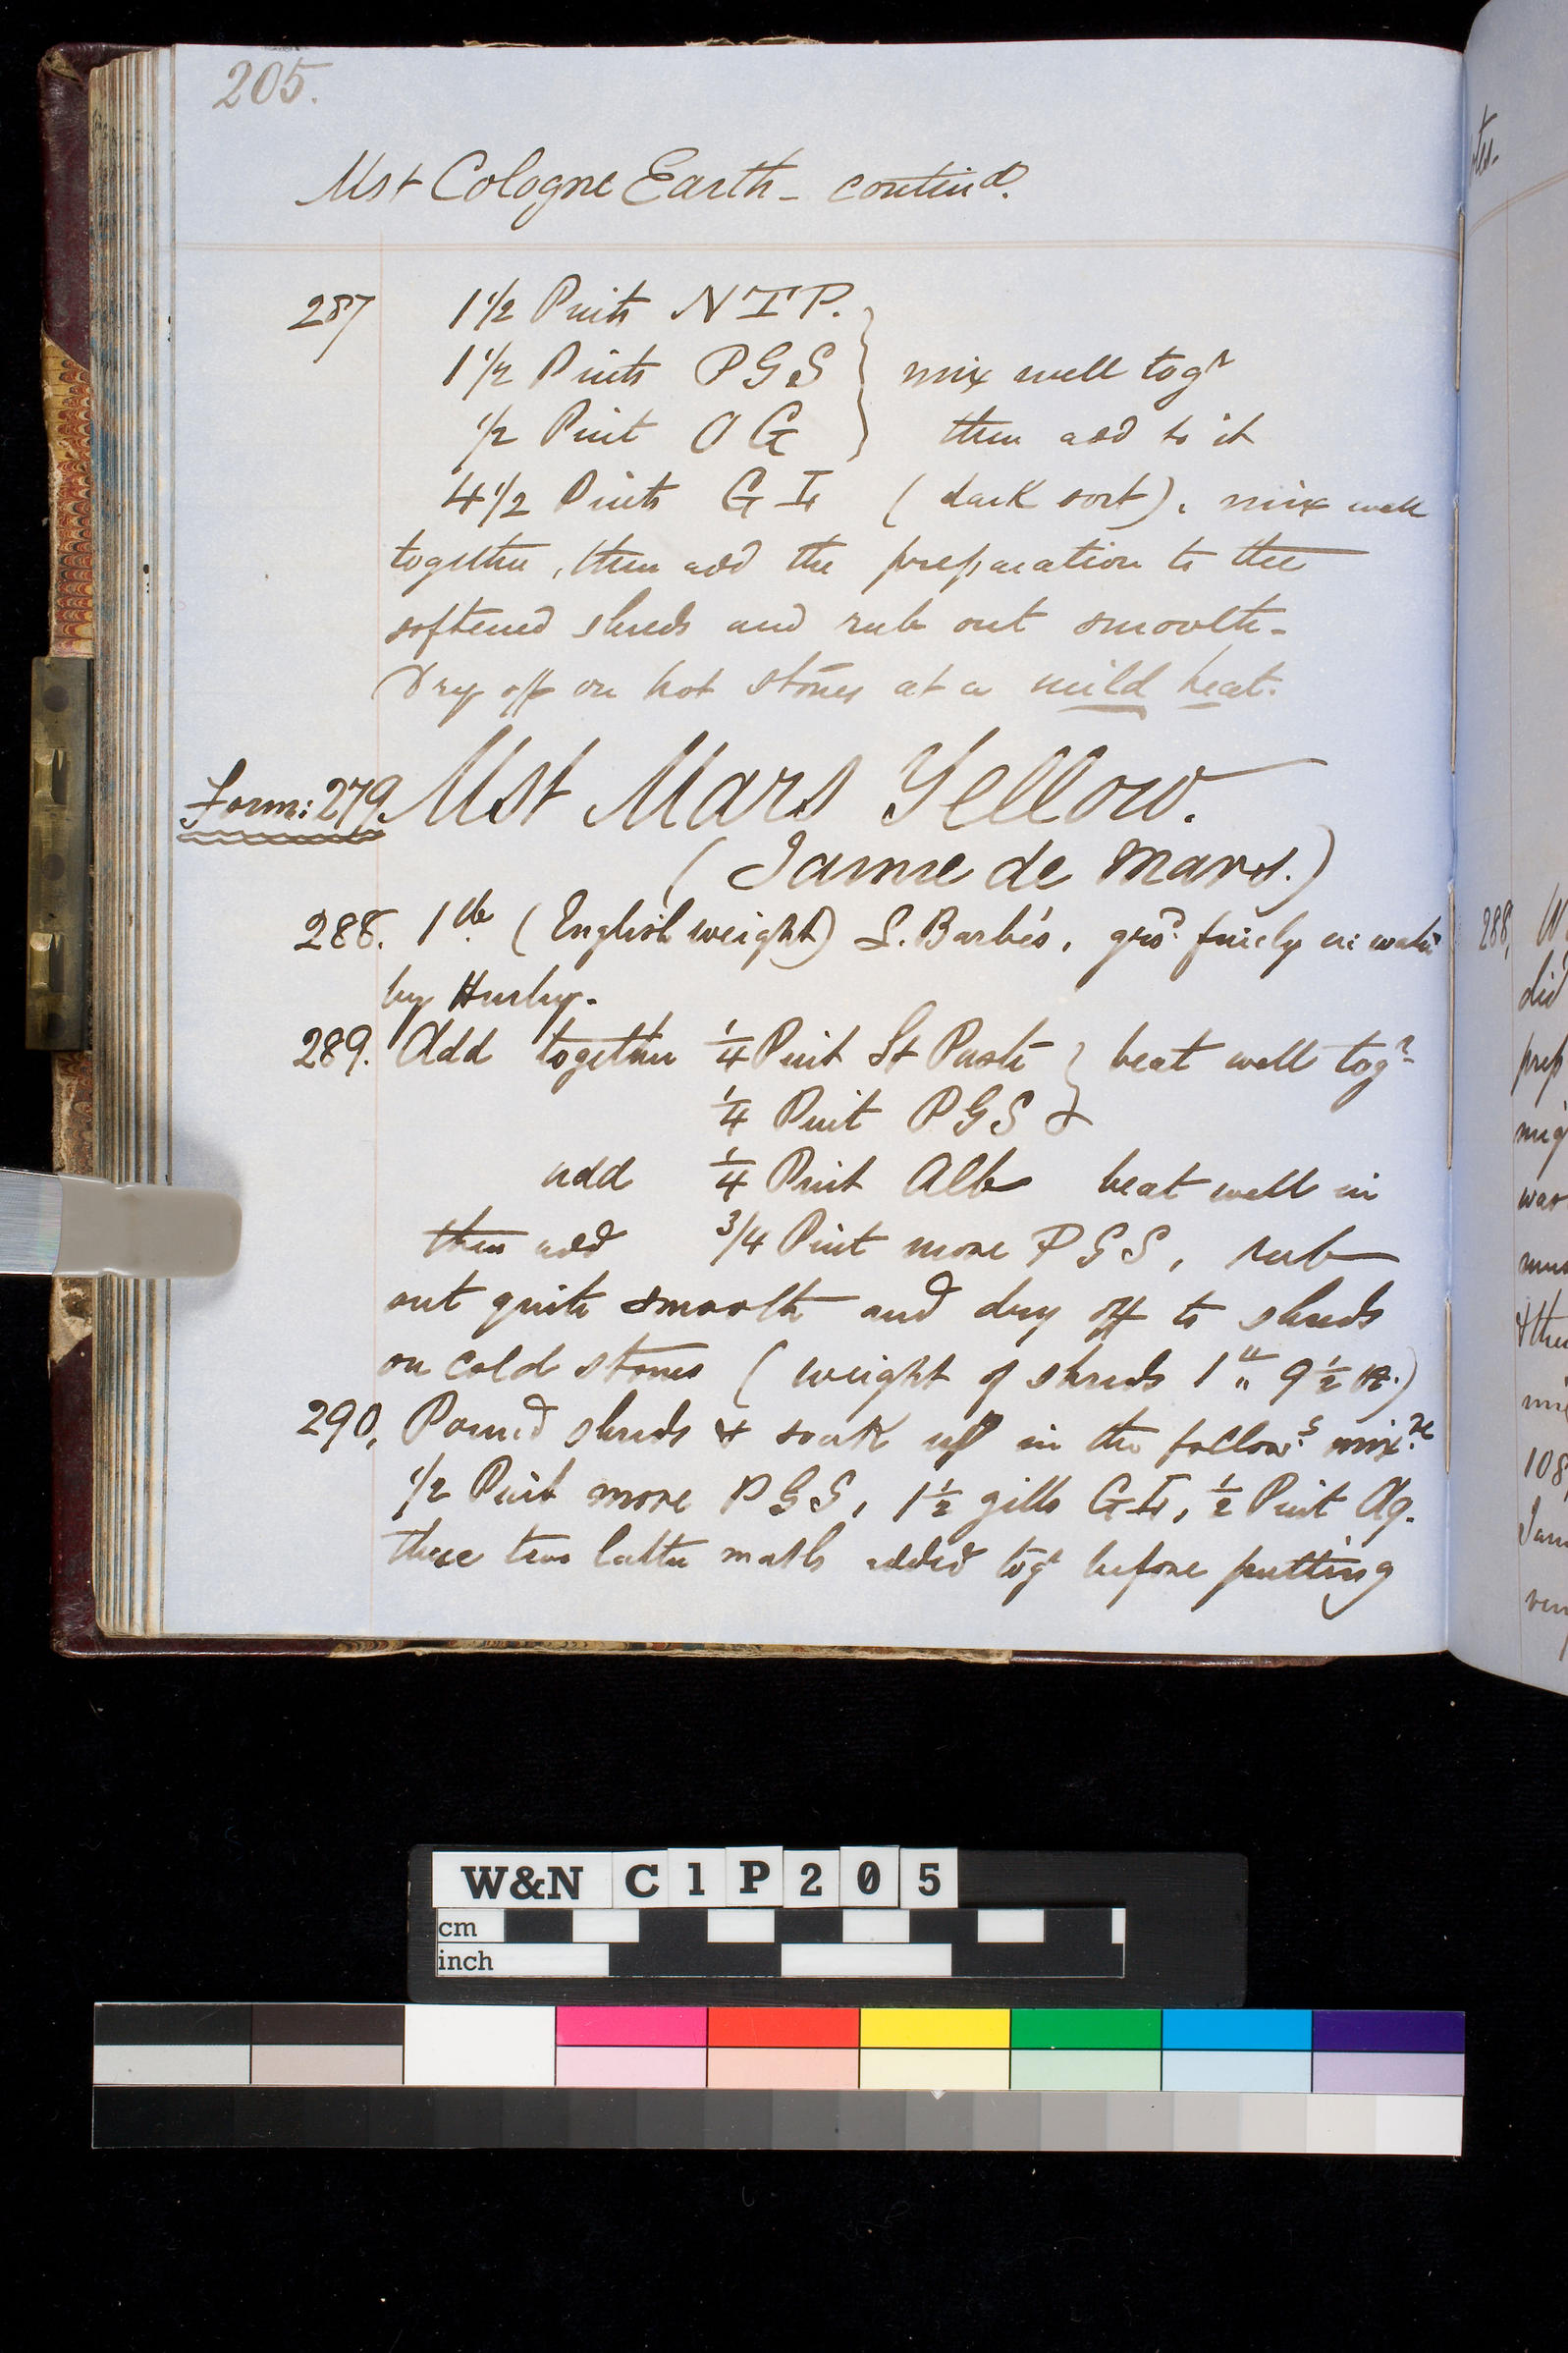 205.
Mst Cologne Earth - contind.
287 1 1/2 Pints N T P.
1 1/2 Pints P G S } mix well togr
1/2 Pint O G } then add to it
4 1/2 Pints G L (dark sort), mix well
together, then add the preparation to the
softened shreds and rub out smooth-
Dry off on hot stones at a mild heat.
Form: 279. Mst Mars Yellow.
(Jaune de Mars.)
288. 1 lb (English weight) L. Barbe's, grd finely in water
by Hurley.
289. Add together 1/4 Pint St Paste } beat well togr
1/4 Pint P G S &
add 1/4 Pint Alb beat well in
then add 3/4 Pint more P G S, rub
out quite smooth and dry off to shreds
on cold stones (weight of shreds 1 lb 9 1/2 oz.)
290, Pound shreds & soak up in the follows mixre
1/2 Pint more P G S, 1 1/2 gills G L, 1/2 Pint Aq.
these two latter matls added togr before putting
288,
did
prep
mig
was
& then
mix
108
W&N C1P205
cm
inch